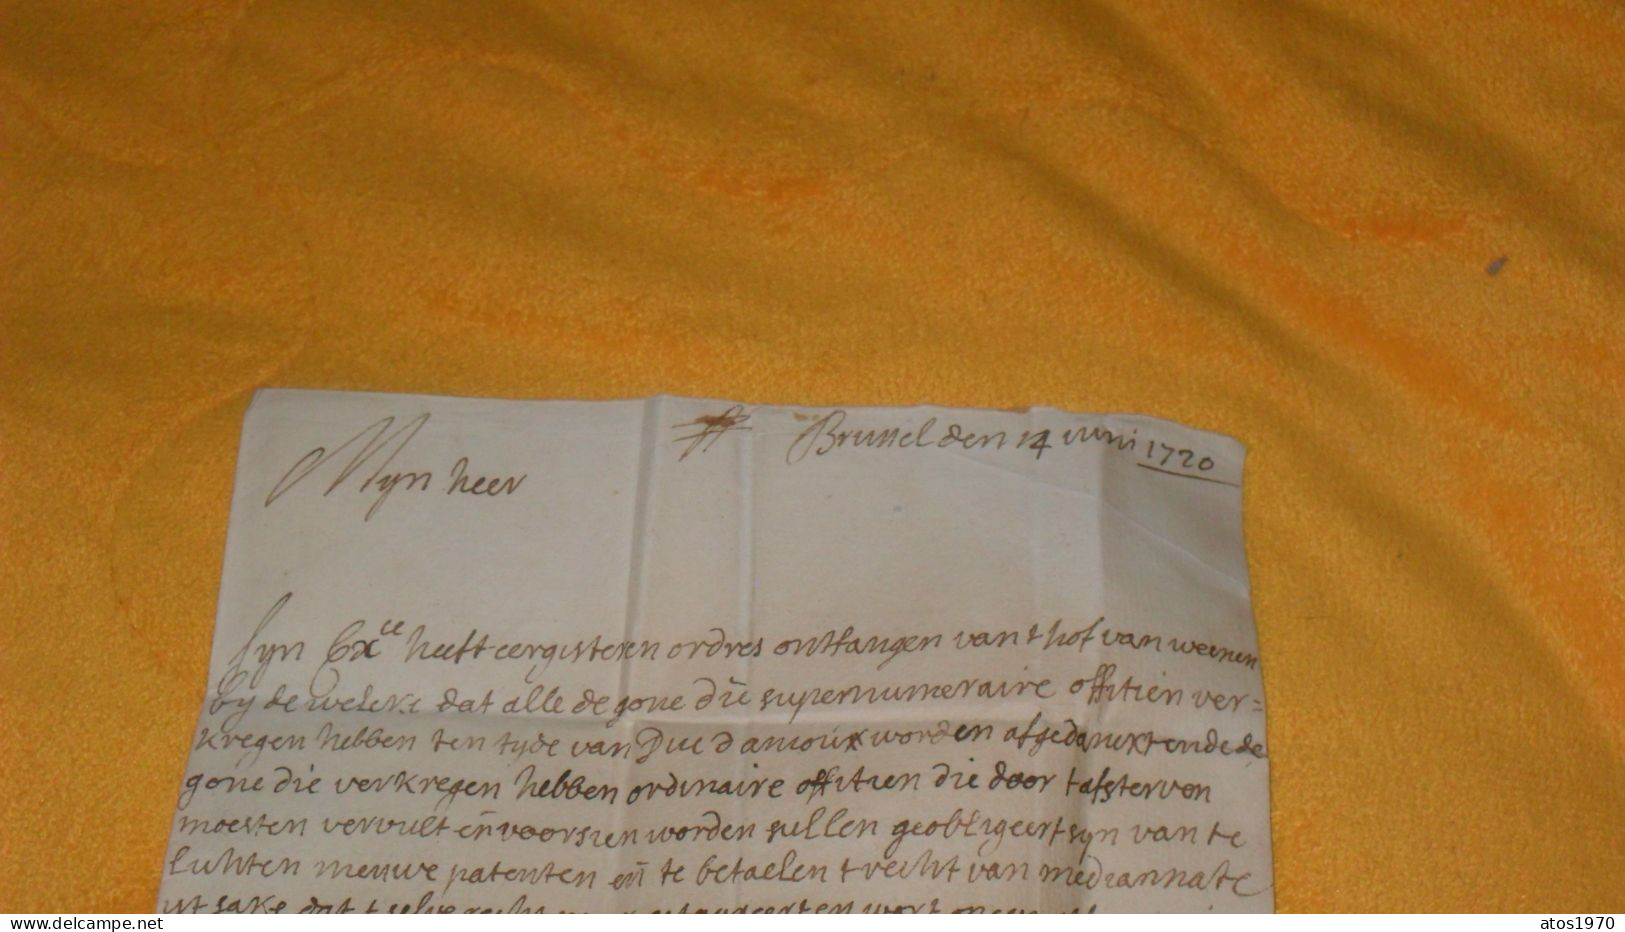 Brussel den 14 iuni 1720
Myn heer
syn Exce heeft eergisteren ordres ontfangen van t hof van weenen
by de welcke dat alle de gone die supernumeraire offitien ver=
kregen hebben ten tyde van Duc d'amoux worden afgedanckt ende de
gone die verkregen hebben ordinaire offitien die door t afsterven
moesten vervult en voorsien worden sullen geobligeert syn van te
lichten nieuwe patenten en te betaelen t recht van mediannate
ut sake dat t selve recht
www.delcampe.net
atos1970